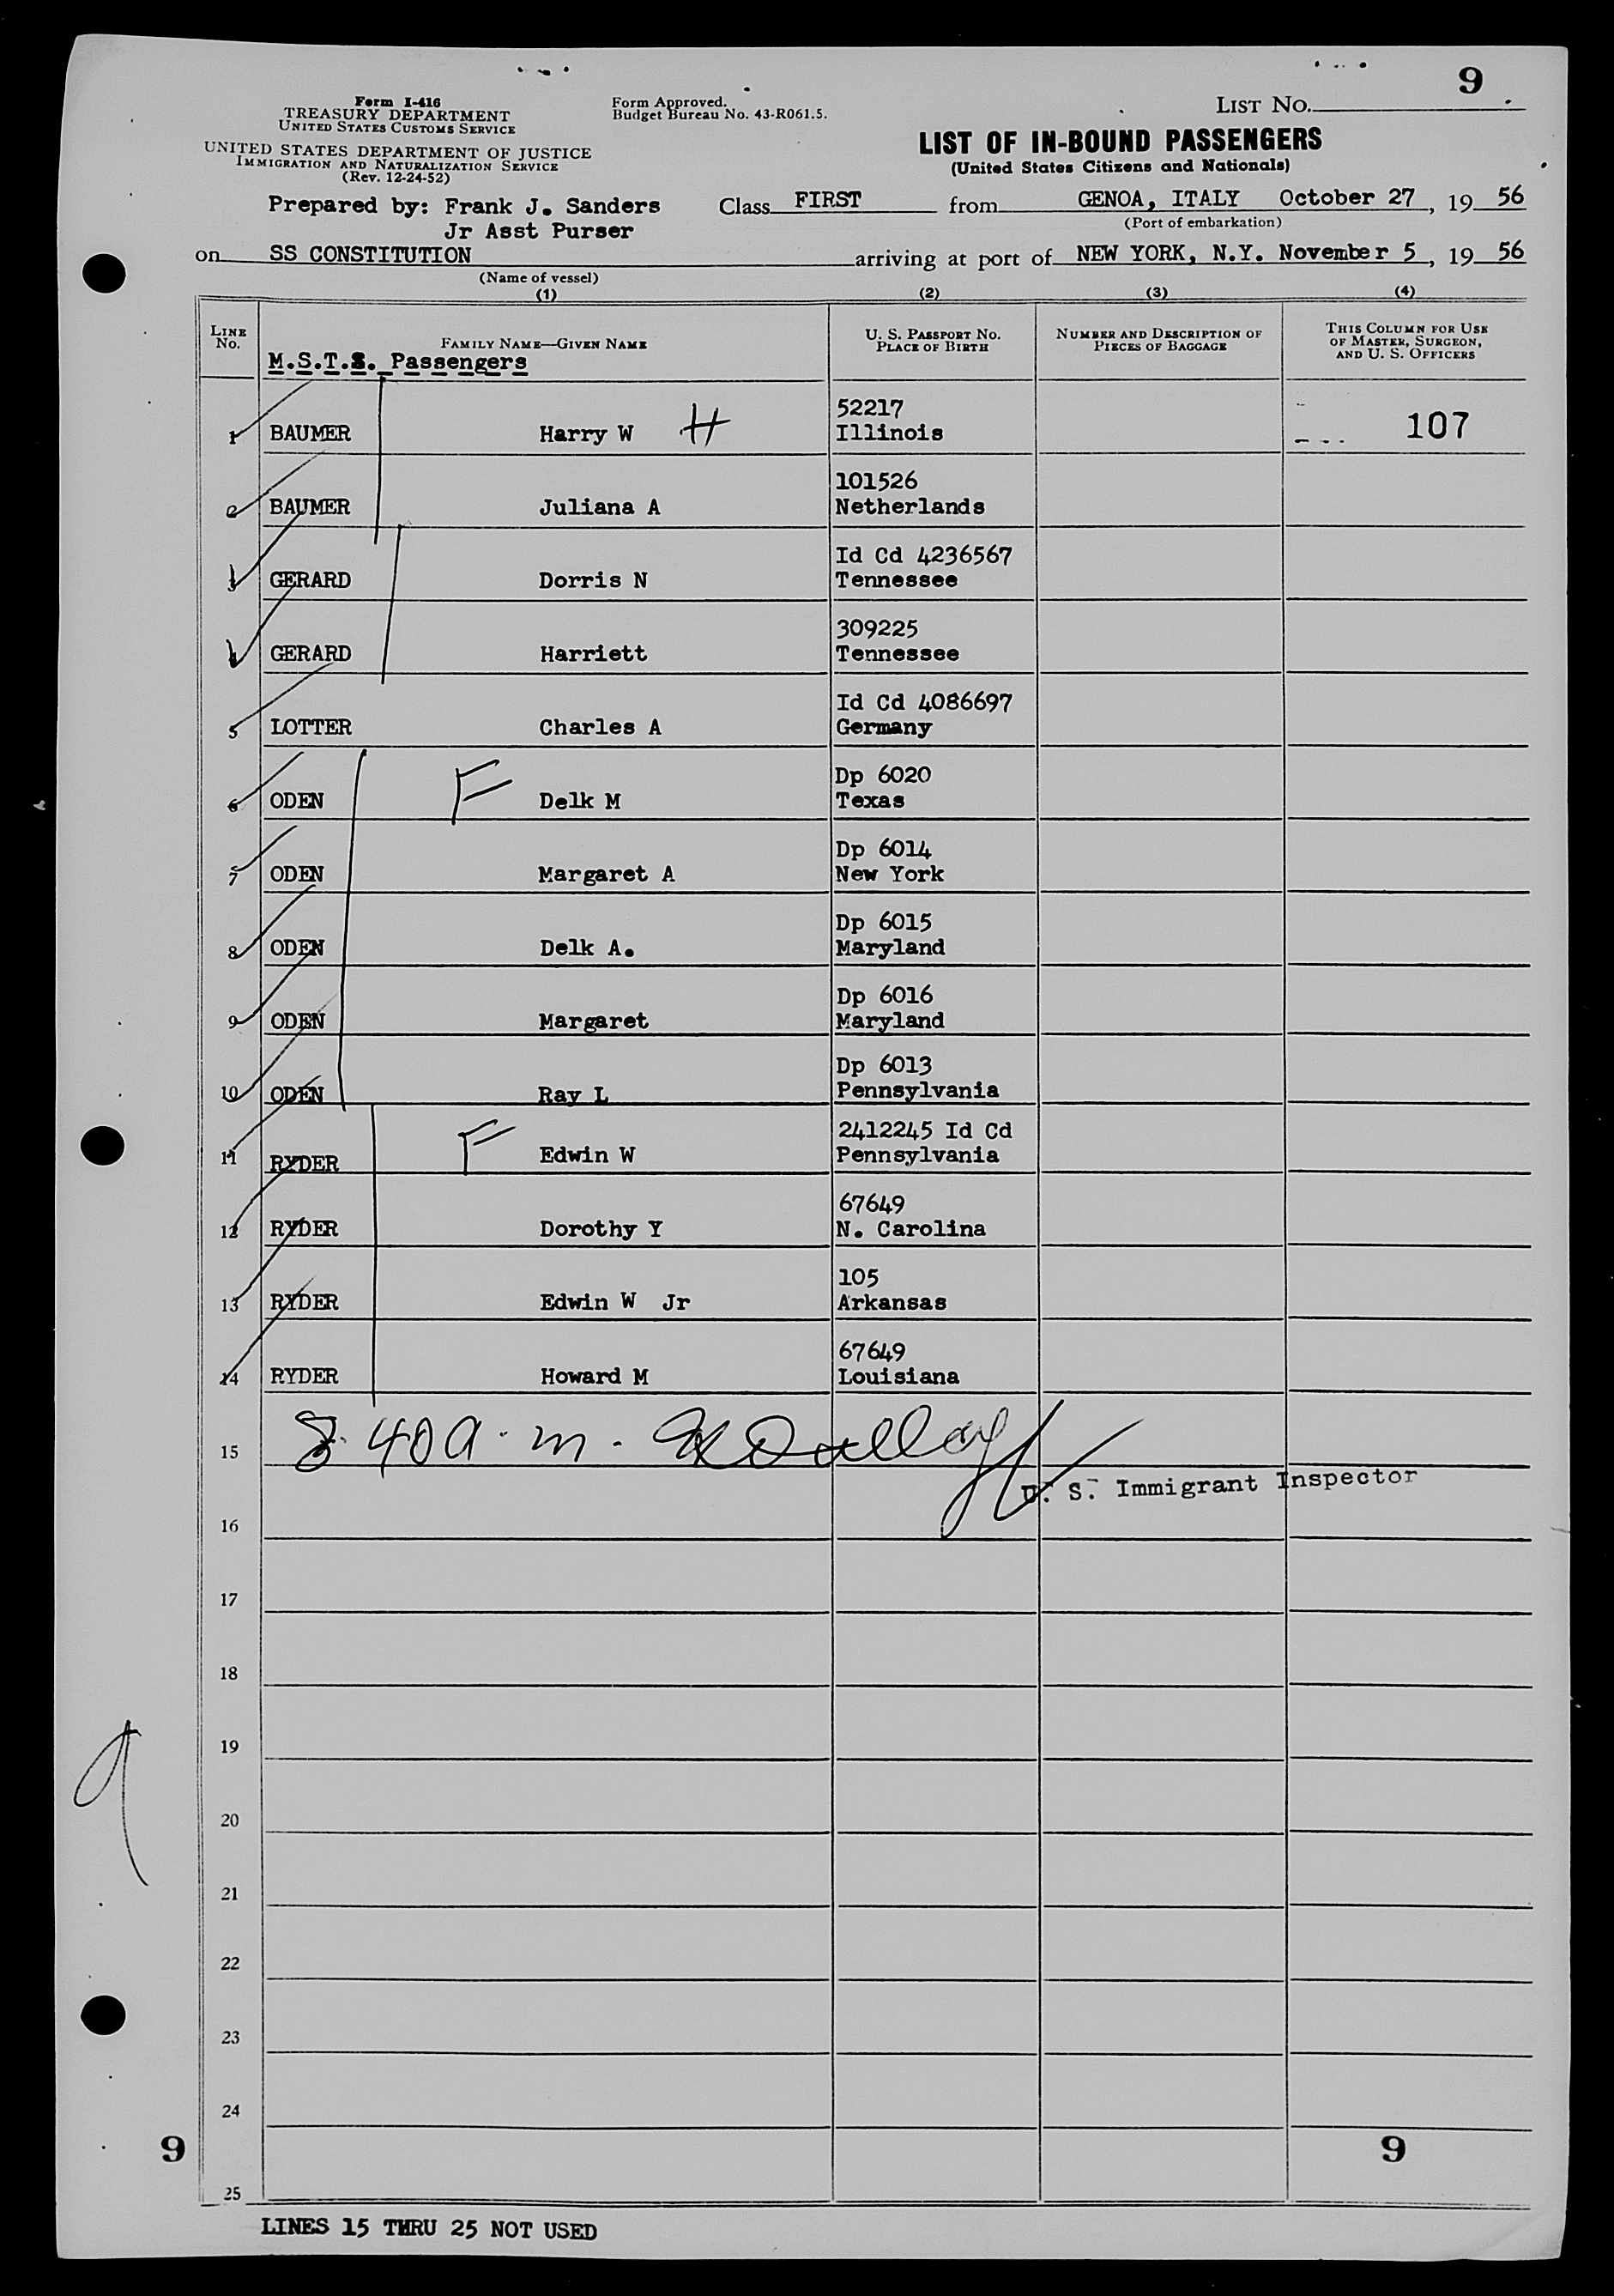 9
Form I-416
TREASURY DEPARTMENT
UNITED STATES CUSTOMS SERVICE
UNITED STATES DEPARTMENT OF JUSTICE
IMMIGRATION AND NATURALIZATION SERVICE
(Rev. 12-24-52)
Form Approved.
Budget Bureau No. 43-R061.5.
LIST NO.
LIST OF IN-BOUND PASSENGERS
(United States Citizens and Nationals)
Prepared by: Frank J. Sanders Class FIRST from GENOA, ITALY October 27, 19 56
Jr Asst Purser (Port of embarkation)
on SS CONSTITUTION arriving at port of NEW YORK, N.Y. November 5, 19 56
(Name of vessel)
(1) (2) (3) (4)
LINE NO. FAMILY NAME—GIVEN NAME U. S. PASSPORT NO. PLACE OF BIRTH NUMBER AND DESCRIPTION OF PIECES OF BAGGAGE THIS COLUMN FOR USE OF MASTER, SURGEON, AND U. S. OFFICERS
M.S.T.S. Passengers
52217
1 BAUMER Harry W H Illinois 107
101526
2 BAUMER Juliana A Netherlands
Id Cd 4236567
3 GERARD Dorris N Tennessee
309225
4 GERARD Harriett Tennessee
Id Cd 4086697
5 LOTTER Charles A Germany
Dp 6020
6 ODEN F Delk M Texas
Dp 6014
7 ODEN Margaret A New York
Dp 6015
8 ODEN Delk A. Maryland
Dp 6016
9 ODEN Margaret Maryland
Dp 6013
10 ODEN Ray L Pennsylvania
2412245 Id Cd
11 RYDER F Edwin W Pennsylvania
67649
12 RYDER Dorothy Y N. Carolina
105
13 RYDER Edwin W Jr Arkansas
67649
14 RYDER Howard M Louisiana
15 8:40 a.m.
U. S. Immigrant Inspector
16
17
18
19
9
20
21
22
23
24
9 9
25
LINES 15 THRU 25 NOT USED